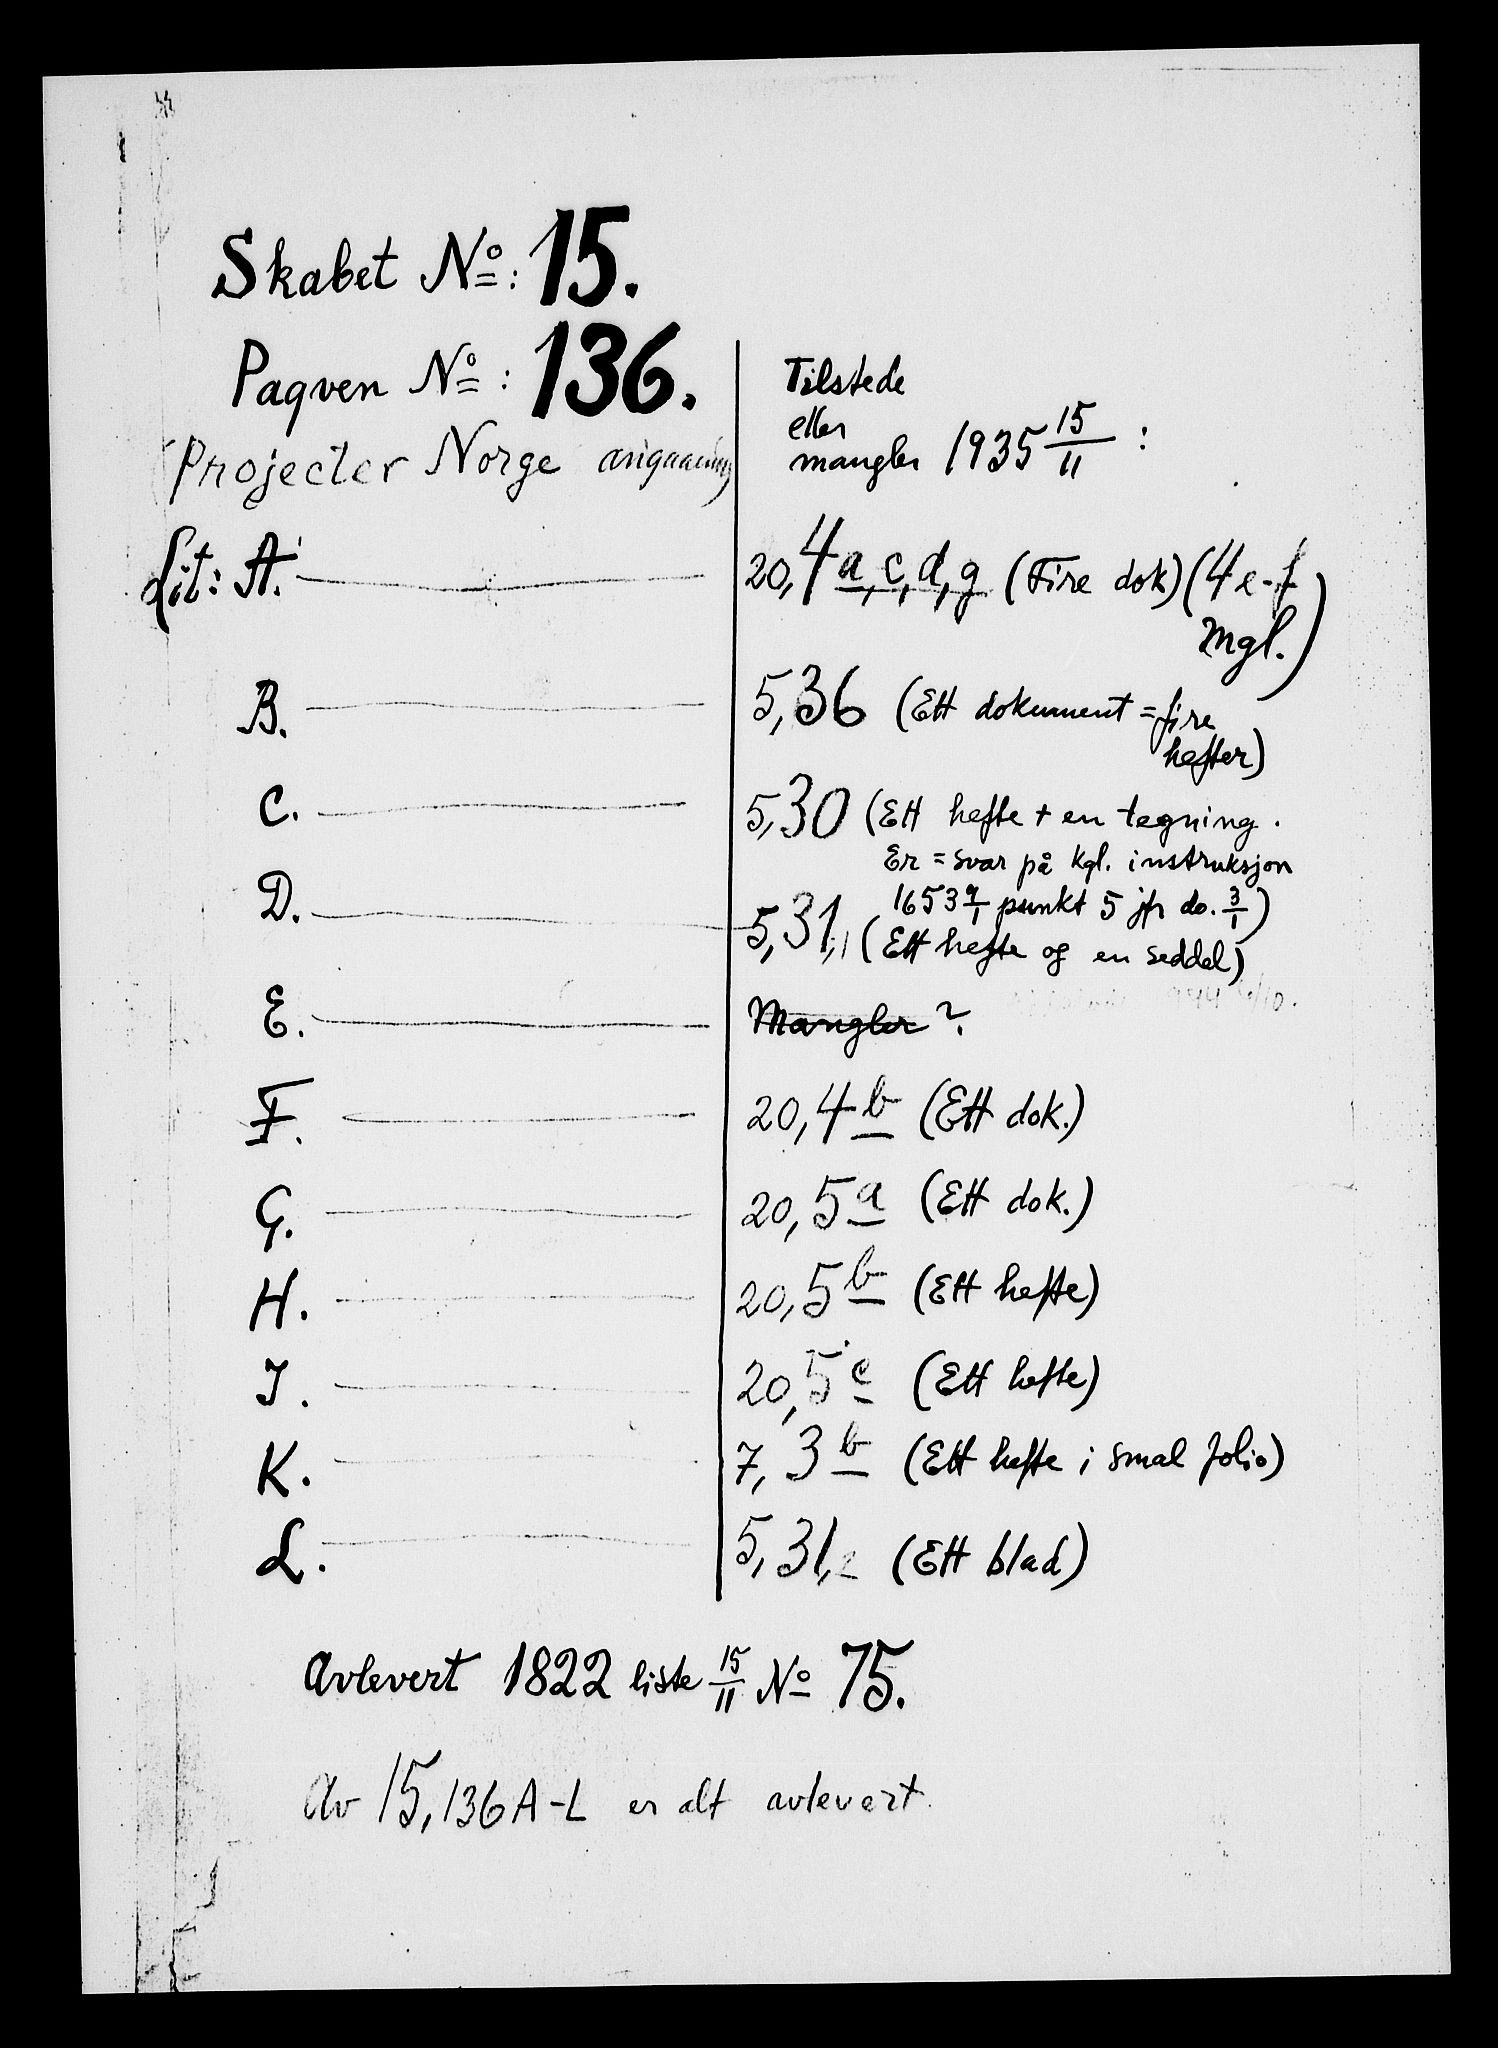 Skabet No: 15.
Paqven No: 136.
(Projecter Norge angaaende)
Tilstede
eller
mangler 1935 15/11 :
Lit: A. 20,4 a, c, d, g (Fire dok) (4 e-f
mgl.)
B. 5,36 (Ett dokument = fire
hefter)
C. 5,30 (Ett hefte + en tegning.
Er = svar på kgl. instruksjon
1653 9/1 punkt 5 jfr do. 3/1)
D. 5,31,1 (Ett hefte og en seddel)
E. Mangler ?
F. 20,4 b (Ett dok.)
G. 20,5 a (Ett dok.)
H. 20,5 b (Ett hefte)
I. 20,5 c (Ett hefte)
K. 7,3 b (Ett hefte i smal folio)
L. 5,31,2 (Ett blad)
Avlevert 1822 liste 15/11 No 75.
Av 15,136 A-L er alt avlevert.